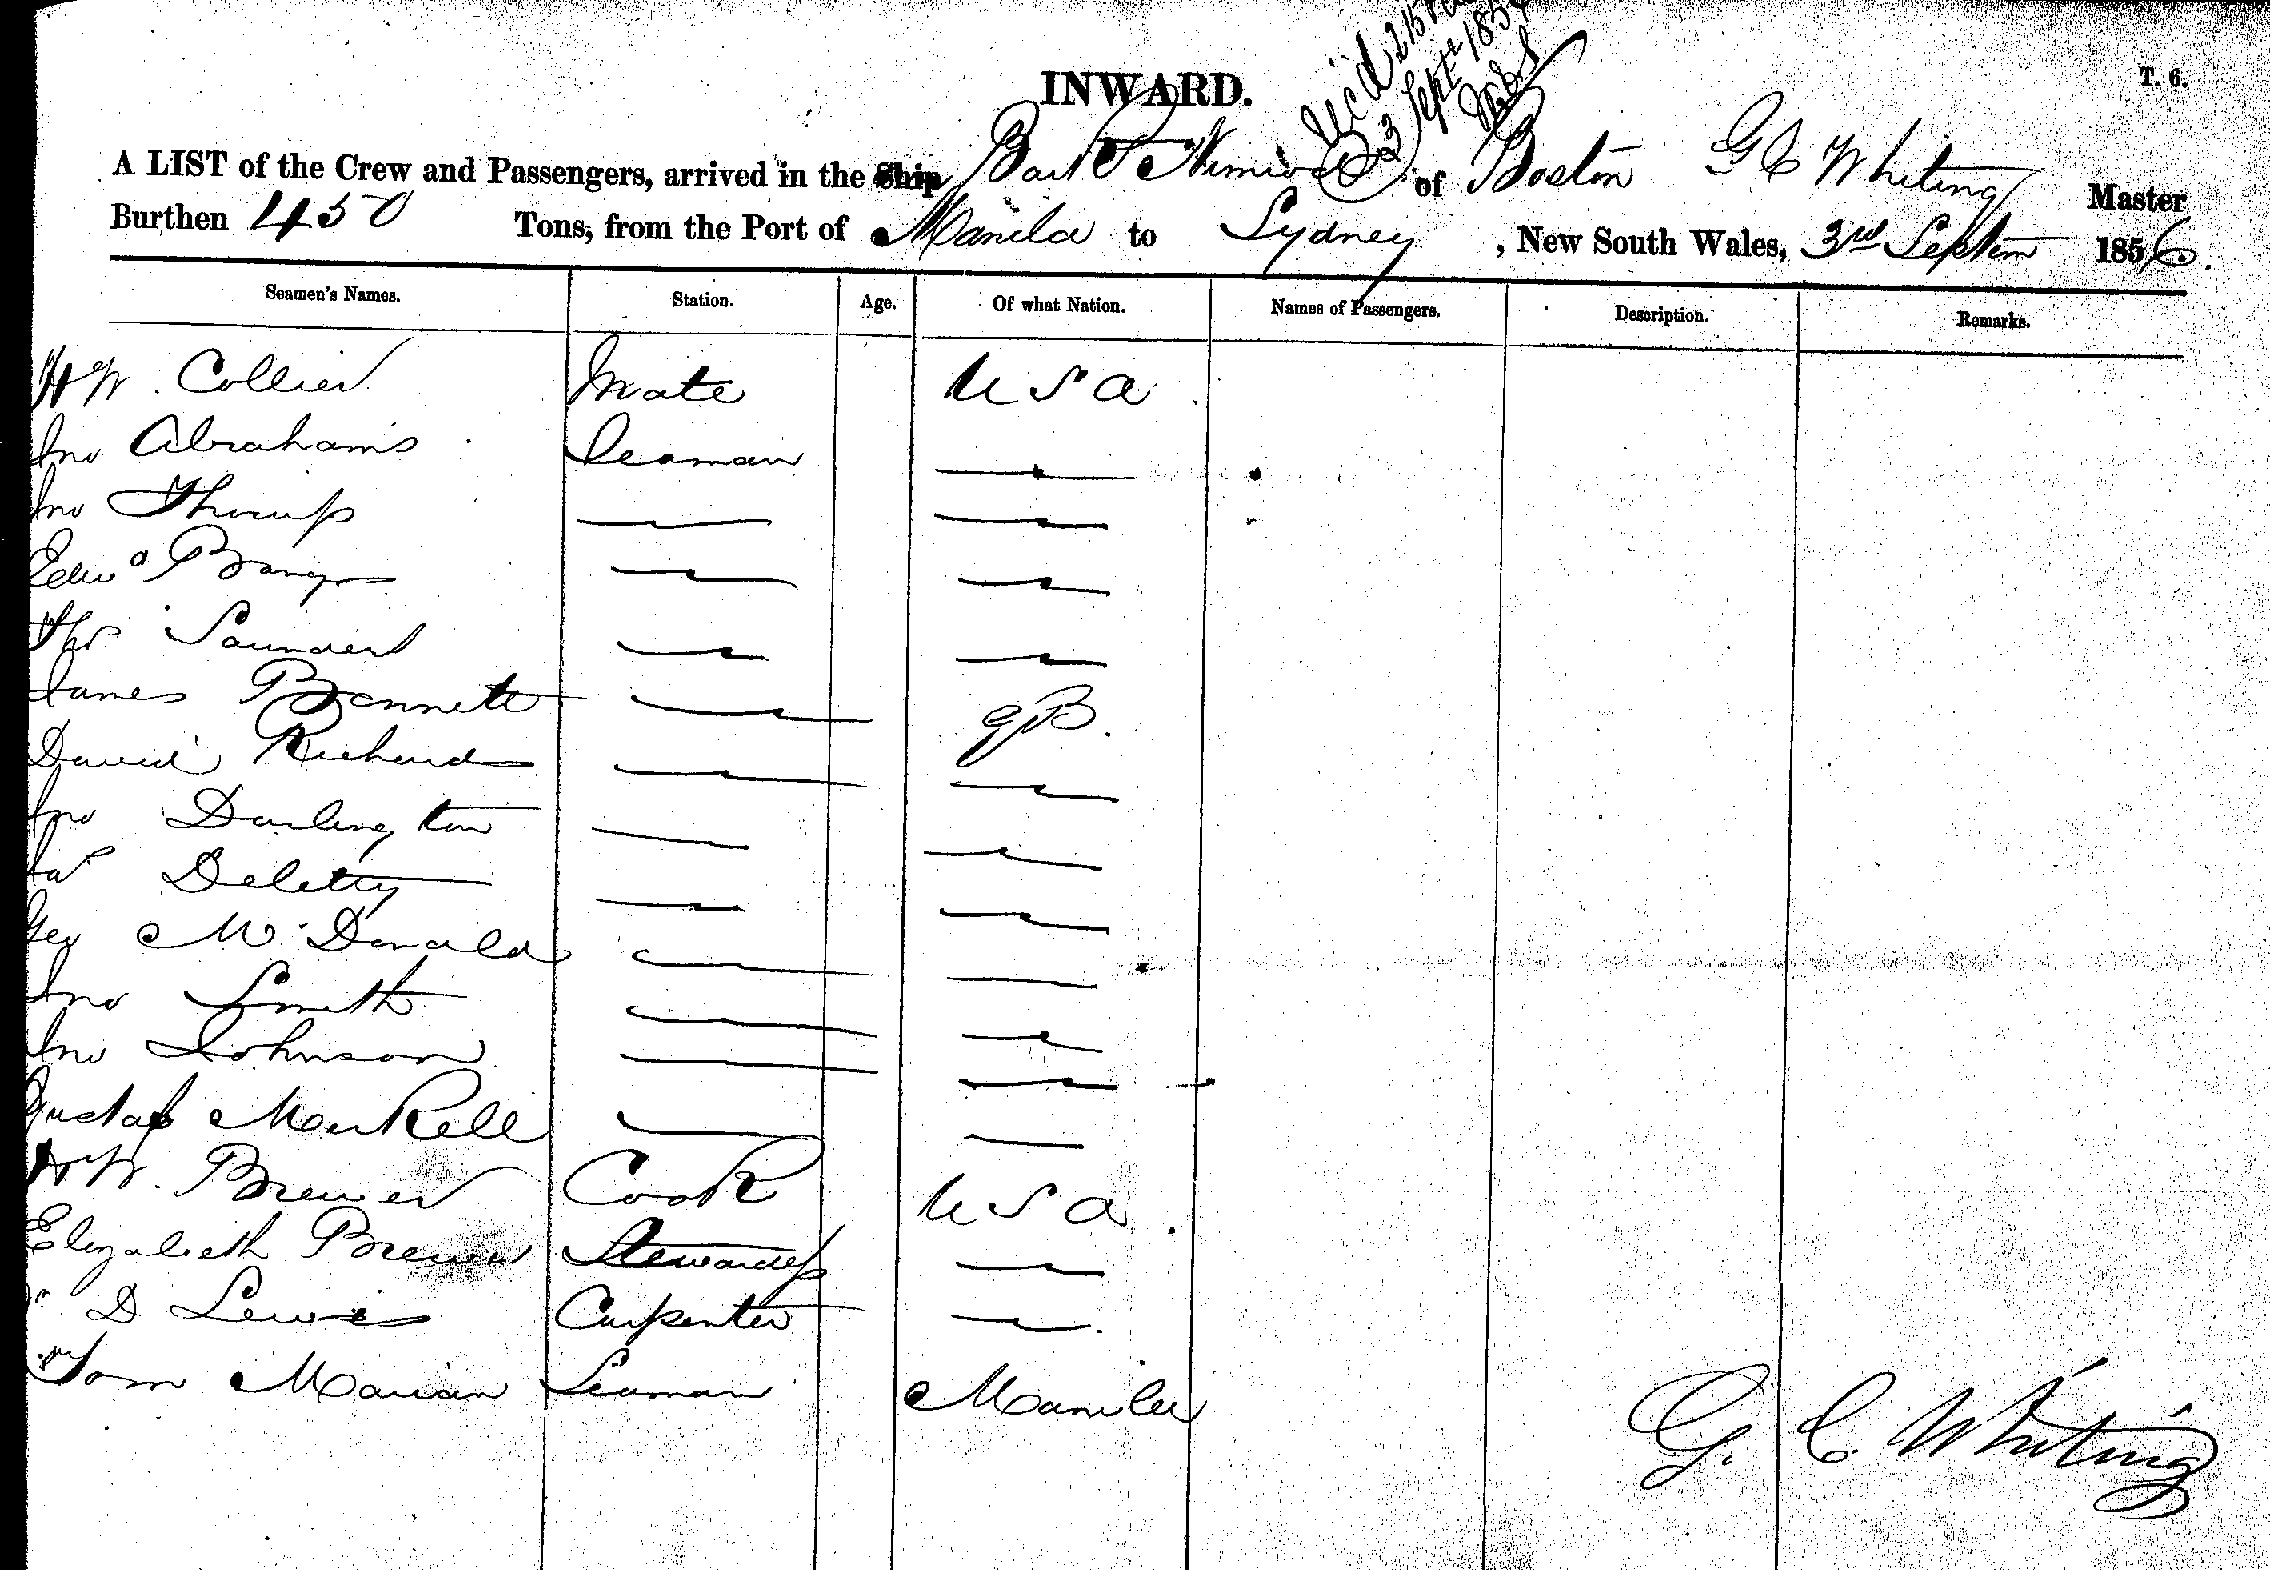 INWARD.
T. 6.
A LIST of the Crew and Passengers, arrived in the Ship Bark Nimrod of Boston G C Whiting Master
Burthen 450 Tons, from the Port of Manila to Sydney, New South Wales, 3rd Septem 1856.
Seamen's Names. Station. Age. Of what Nation. Names of Passengers. Description. Remarks.
H W. Collier Mate U S A
Jno Abrahams Seaman
Jno
Edwd
Thos Saunders
James Bennett G B.
David Richards
Jno Darlington
Jas
Geo McDonald
Jno Smith
Jno Johnson
Gustaf
W. Brewer Cook U S A.
Elizabeth Brewer Stewardess
D Lewis Carpenter
Tom Marian Seaman Manila
G. C Whiting